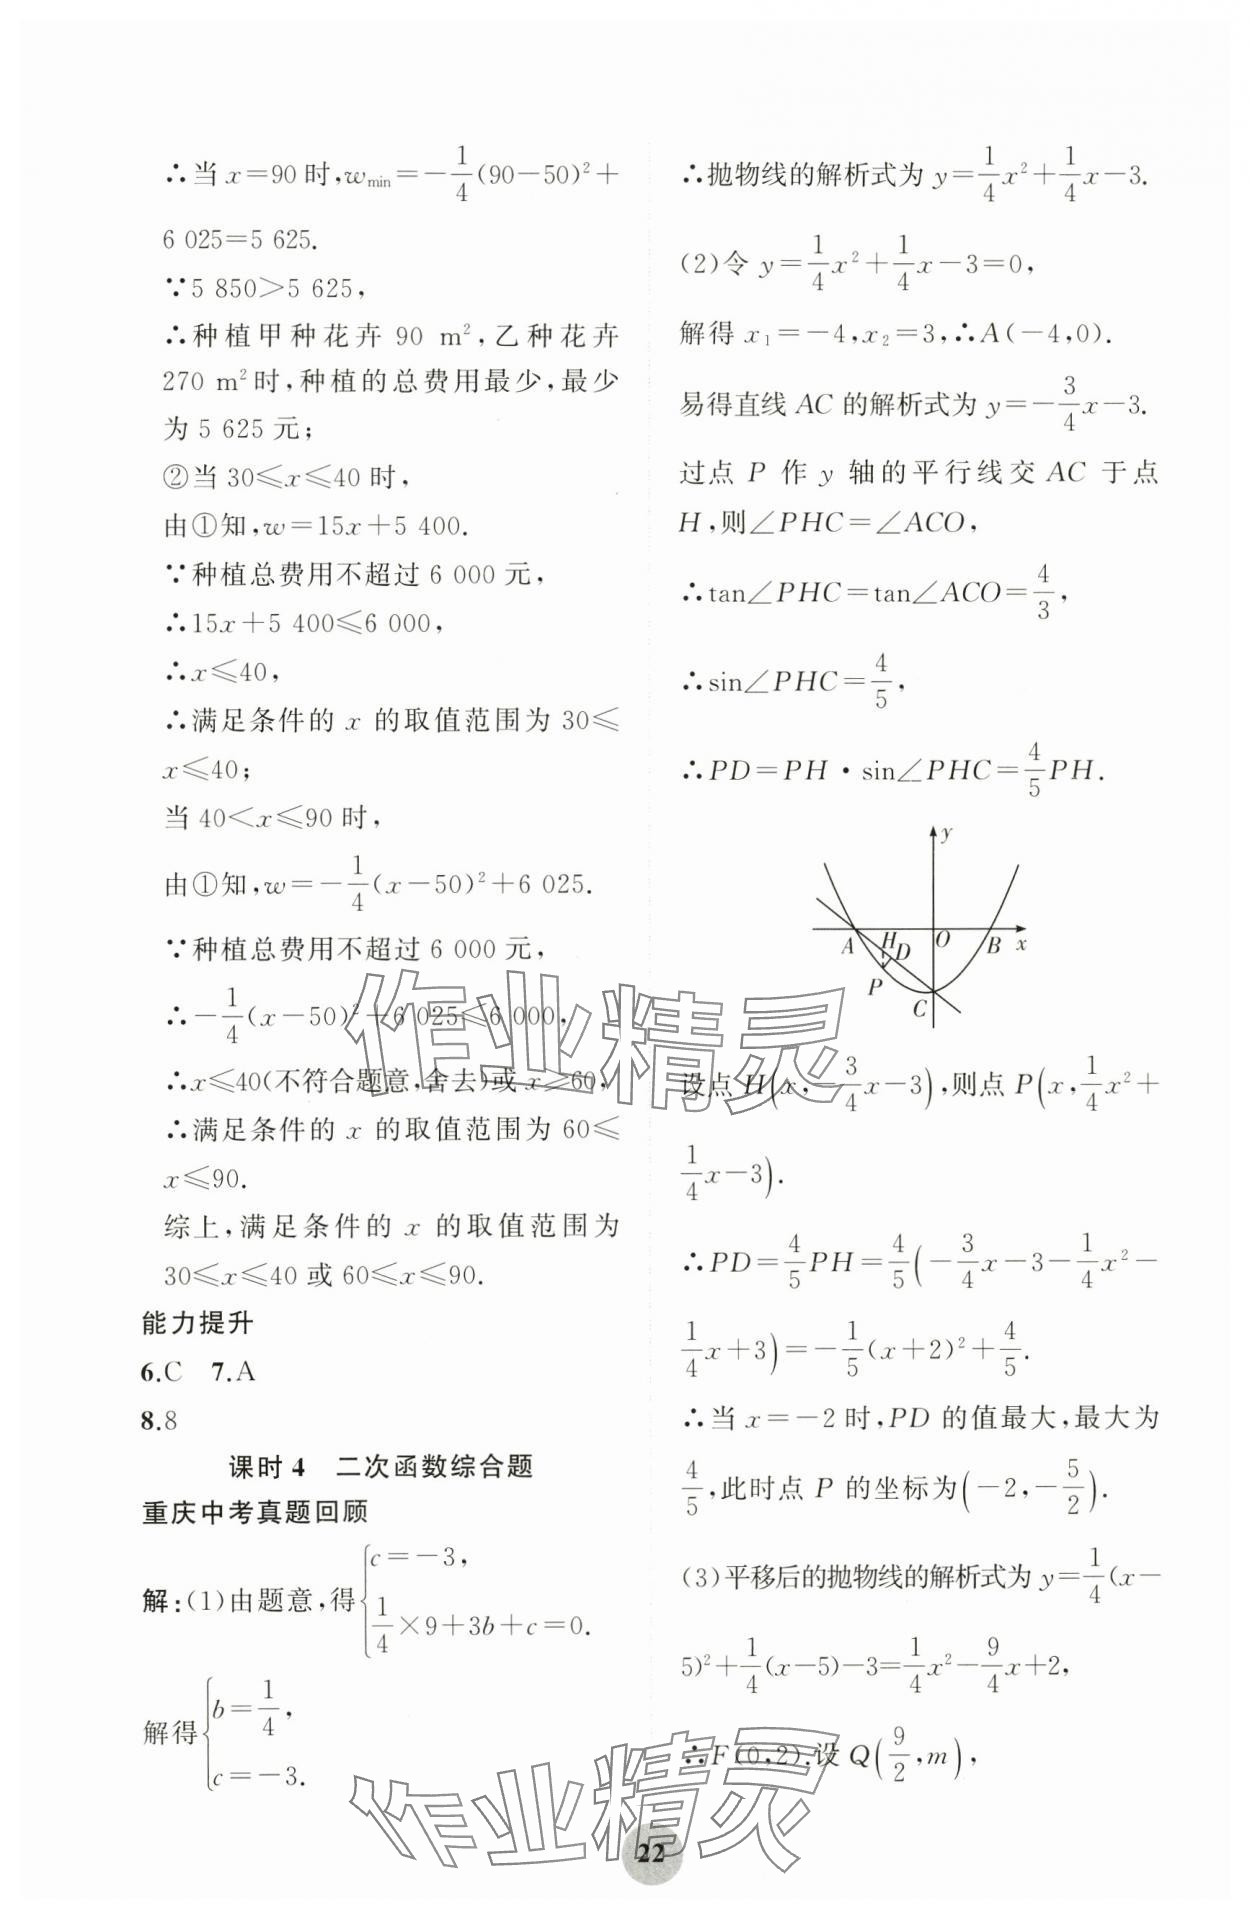 ∴当 x=90 时,w_min=-1/4(90-50)²+
6 025=5 625.
∵5 850>5 625,
∴种植甲种花卉 90 m²,乙种花卉
270 m²时,种植的总费用最少,最少
为 5 625 元;
②当 30≤x≤40 时,
由①知,w=15x+5 400.
∵种植总费用不超过 6 000 元,
∴15x+5 400≤6 000,
∴x≤40,
∴满足条件的 x 的取值范围为 30≤
x≤40;
当 40<x≤90 时,
由①知,w=-1/4(x-50)²+6 025.
∵种植总费用不超过 6 000 元,
∴-1/4(x-50)²+6 025≤6 000,
∴x≤40(不符合题意,舍去)或 x≥60,
∴满足条件的 x 的取值范围为 60≤
x≤90.
综上,满足条件的 x 的取值范围为
30≤x≤40 或 60≤x≤90.
能力提升
6.C 7.A
8.8
课时 4 二次函数综合题
重庆中考真题回顾
解:(1)由题意,得{c=-3, 1/4×9+3b+c=0.
解得{b=1/4, c=-3.
∴抛物线的解析式为 y=1/4x²+1/4x-3.
(2)令 y=1/4x²+1/4x-3=0,
解得 x₁=-4,x₂=3,∴A(-4,0).
易得直线 AC 的解析式为 y=-3/4x-3.
过点 P 作 y 轴的平行线交 AC 于点
H,则∠PHC=∠ACO,
∴tan∠PHC=tan∠ACO=4/3,
∴sin∠PHC=4/5,
∴PD=PH·sin∠PHC=4/5PH.
y
A H O B x
D
P
C
设点 H(x,-3/4x-3),则点 P(x,1/4x²+
1/4x-3).
∴PD=4/5PH=4/5(-3/4x-3-1/4x²-
1/4x+3)=-1/5(x+2)²+4/5.
∴当 x=-2 时,PD 的值最大,最大为
4/5,此时点 P 的坐标为(-2,-5/2).
(3)平移后的抛物线的解析式为 y=1/4(x-
5)²+1/4(x-5)-3=1/4x²-9/4x+2,
∴F(0,2).设 Q(9/2,m),
作业精灵
作业精灵
22